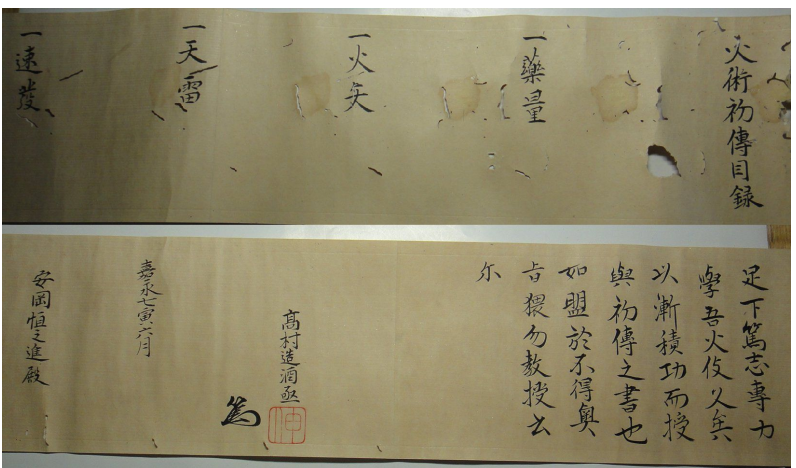 火術初傳目録
一藥量
一火矢
一天雷
一速發
足下篤志專力
學吾火伎久矣
以漸積功而授
與初傳之書也
如盟於不得奥
旨猥勿教授云
尓
高村造酒丞
嘉永七寅六月
安岡恒之進殿